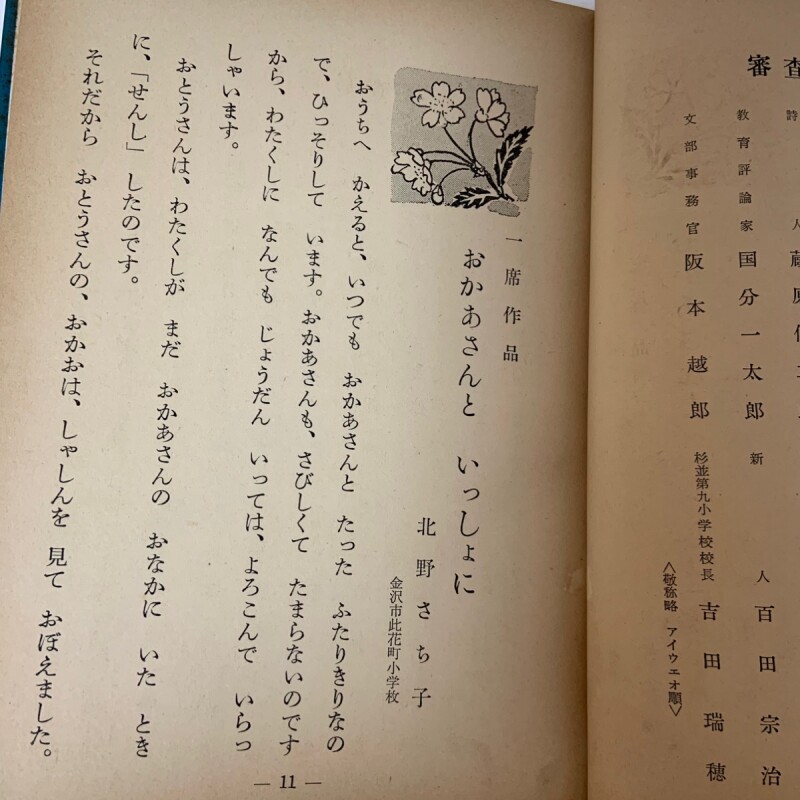 審査
詩人 藤原
教育評論家 国分一太郎 新人 百田宗治
文部事務官 阪本越郎 杉並第九小学校校長 吉田瑞穂
〈敬称略 アイウェオ順〉
一席作品
おかあさんと いっしょに
北野さち子
金沢市此花町小学校
おうちへ かえると、いつでも おかあさんと たった ふたりきりなの
で、ひっそりして います。おかあさんも、さびしくて たまらないのです
から、わたくしに なんでも じょうだん いっては、よろこんで いらっ
しゃいます。
おとうさんは、わたくしが まだ おかあさんの おなかに いた とき
に、「せんし」 したのです。
それだから おとうさんの、おかおは、しゃしんを 見て おぼえました。
— 11 —